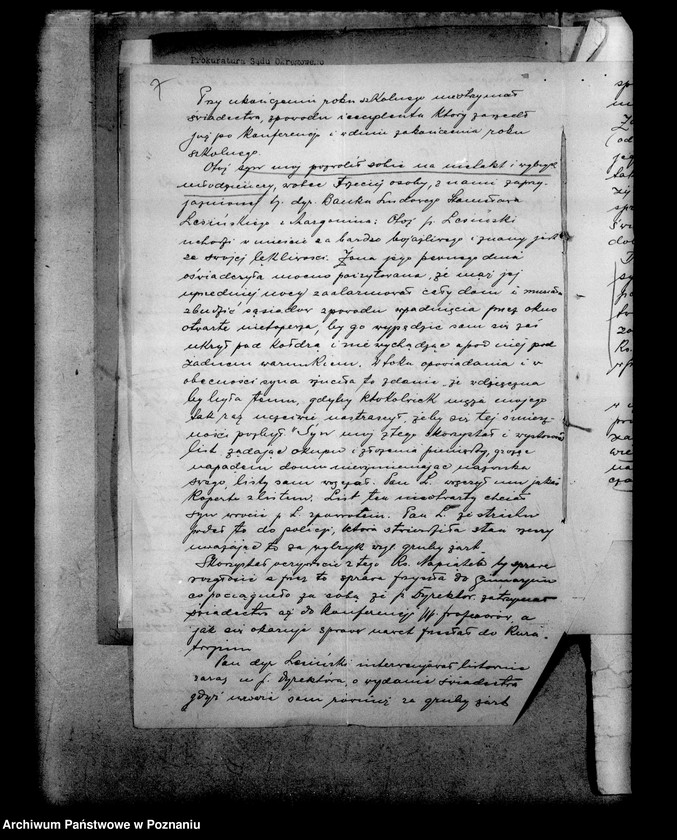 Prokuratura Sądu Okręgowego
7
Przy ukończeniu roku szkolnego nieotrzymał
świadectwa, zpowodu incydentu który zaszedł
już po konferencji w dniu zakończenia roku
szkolnego.
Otóż syn mój pozwolił sobie na nietakt i wybryk
młodzieńczy, wobec trzeciej osoby, z nami zaprzy-
jaźnionej tj. dyr. Banku Ludowego Stanisława
Lesińskiego z Margonina; Otóż p. Lesiński
uchodzi w mieście za bardzo bojaźliwego i znany jest
ze swojej lękliwości. Żona jego pewnego dnia
oświadczyła mocno poirytowana, że mąż jej
uprzedniej nocy zaalarmował cały dom i musiała
zbudzić sąsiadów zpowodu wpadnięcia przez okno
otwarte nietoperza, by go wypędzić sam się zaś
ukrył pod kołdrą i nie wychodząc z pod niej pod
żadnem warunkiem. W toku opowiadania i w
obecności syna rzuciła to zdanie, że wdzięczna
by była temu, gdyby ktokolwiek męża mojego
tak raz uczciwie nastraszył, żeby się tej śmiesz-
ności pozbył. Syn mój z tego skorzystał i wystosował
list, żądając okupu i złożenia pieniędzy, grożąc
napadem domu niewymieniając nazwiska
swego, listy sam wręczał. Pan L. wręczył mu jakąś
kopertę z listem. List ten nieotwarty chciał
syn wrócić p L. zpowrotem. Pan L. ze strachu
podał to do policji, która stwierdziła stan rzeczy
uważając to za wybryk wzgl. gruby żart.
Skorzystał oczywiście z tego Ks. Napiątek by sprawę
rozgłosić a przez to sprawa przyszła do Gimnazjum
co pociągnęło za sobą że p Dyrektor zatrzymał
świadectwo aż do Konferencji profesorów, a
jak się okazuje sprawa nawet poszła do Kura-
torjum.
Pan dyr Lesiński interwenjował listownie
zaraz u p. Dyrektora, o wydanie świadectwa
gdyż uważa sam również za gruby żart